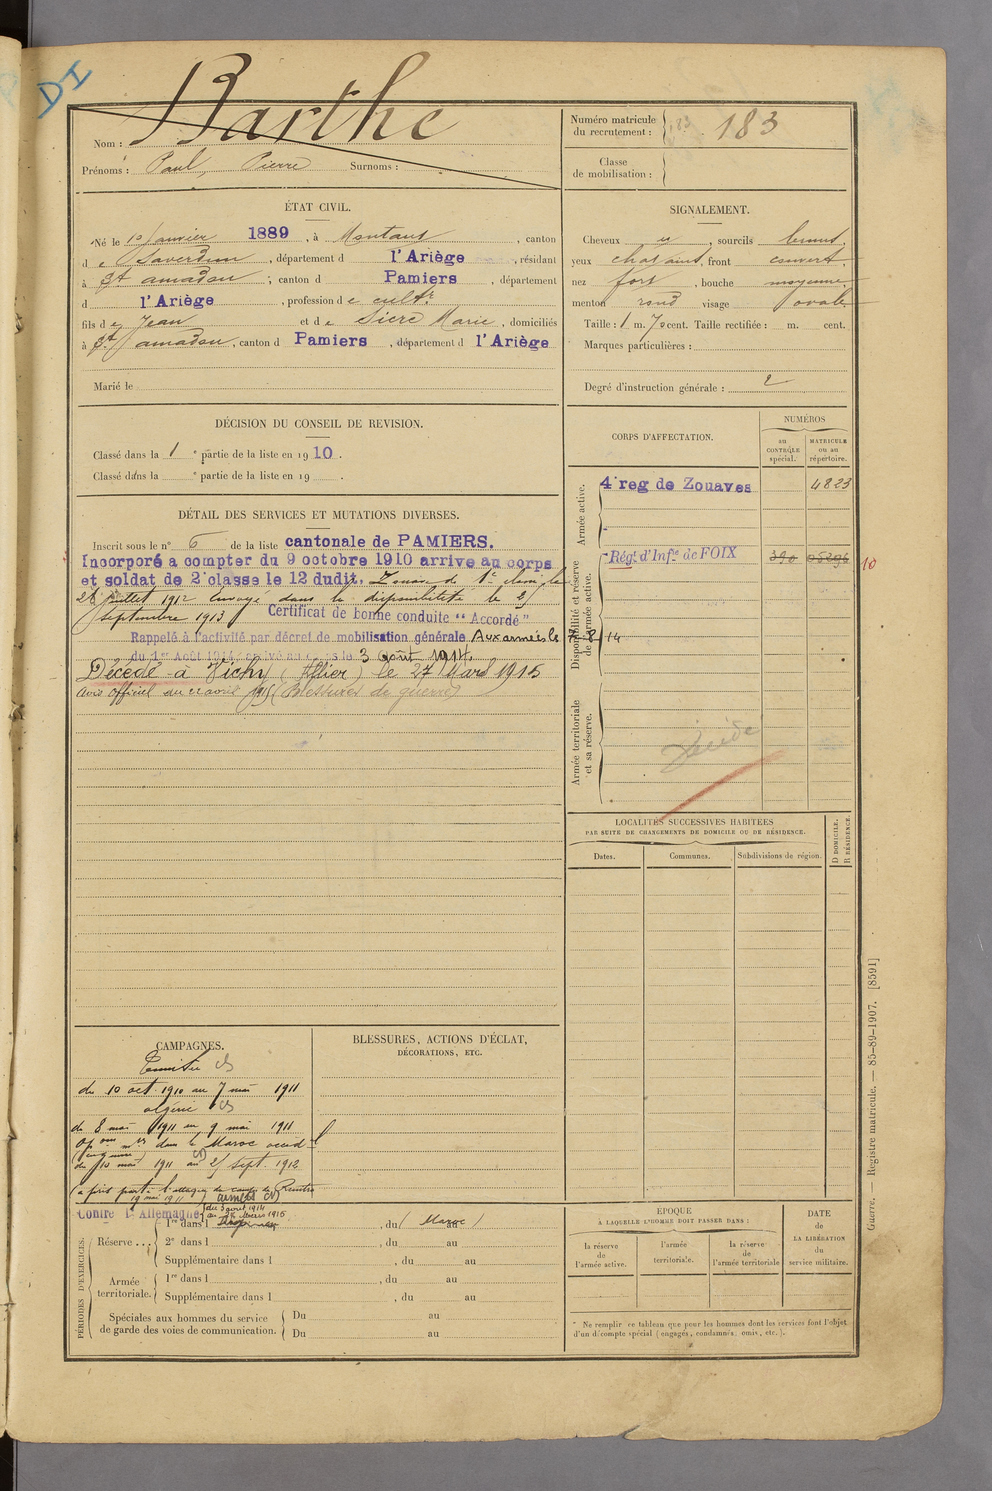 DI
Barthe
Nom :
Prénoms : Paul, Pierre Surnoms :
Numéro matricule du recrutement : 183
Classe de mobilisation :
ÉTAT CIVIL.
Né le janvier 1889, à Montaut, canton
de Saverdun, département d l'Ariège, résidant
à St amadou ; canton d Pamiers, département
d l'Ariège, profession de cultr
fils de Jean et de Sicre Marie, domiciliés
à St amadou, canton d Pamiers, département d l'Ariège
Marié le
SIGNALEMENT.
Cheveux et, sourcils bruns,
yeux chatains, front couvert,
nez fort, bouche moyenne,
menton rond visage ovale.
Taille : 1 m. 70 cent. Taille rectifiée : m. cent.
Marques particulières :
Degré d'instruction générale : 2
DÉCISION DU CONSEIL DE REVISION.
Classé dans la 1e partie de la liste en 1910.
Classé dans la e partie de la liste en 19 .
DÉTAIL DES SERVICES ET MUTATIONS DIVERSES.
Inscrit sous le n° 6 de la liste cantonale de PAMIERS.
Incorporé a compter du 9 octobre 1910 arrive au corps
et soldat de 2e classe le 12 dudit. Zouave de 1e classe le
juillet 1912 Envoyé dans la disponibilité le 25
Septembre 1913 Certificat de bonne conduite "Accordé"
Rappelé à l'activité par décret de mobilisation générale Aux armées le 8/14
du 1er Août 1914 arrivé au corps le 3 Août 1914.
Décédé à Vichy (Allier) le 27 Mars 1915
avis officiel du 22 avril 1915 (Blessures de guerre)
CORPS D'AFFECTATION.
NUMÉROS
AU CONTRÔLE spécial.
MATRICULE ou au répertoire.
Armée active.
4e reg de Zouaves 4823
Disponibilité et réserve de l'armée active.
Régt. d'Infie de FOIX 390 10
Armée territoriale et sa réserve.
Décédé
LOCALITÉS SUCCESSIVES HABITÉES
PAR SUITE DE CHANGEMENTS DE DOMICILE OU DE RÉSIDENCE.
Dates. Communes. Subdivisions de région.
D DOMICILE. R RÉSIDENCE.
CAMPAGNES.
Tunisie CS
du 10 oct. 1910 au 7 mai 1911
algérie CS
du 8 mai 1911 au 9 mai 1911
dans le Maroc occid-l
du 10 mai 1911 au 25 sept. 1912
(a pris part à l'attaque du camp de
19 mai 1911) armées CS
Contre l'Allemagne du 3 aout 1914
BLESSURES, ACTIONS D'ÉCLAT,
DÉCORATIONS, ETC.
PÉRIODES D'EXERCICES.
Réserve ...
1re dans l , du (Maroc) au
2e dans l , du au
Supplémentaire dans l , du au
Armée territoriale.
1re dans l , du au
Supplémentaire dans l , du au
Spéciales aux hommes du service de garde des voies de communication.
Du au
Du au
EPOQUE
À LAQUELLE L'HOMME DOIT PASSER DANS :
la réserve de l'armée active.
l'armée territoriale.
la réserve de l'armée territoriale
DATE de LA LIBÉRATION du service militaire.
* Ne remplir ce tableau que pour les hommes dont les services font l'objet
d'un décompte spécial (engagés, condamnés, omis, etc.).
Guerre. — Registre matricule. — 85-89-1907. [8591]